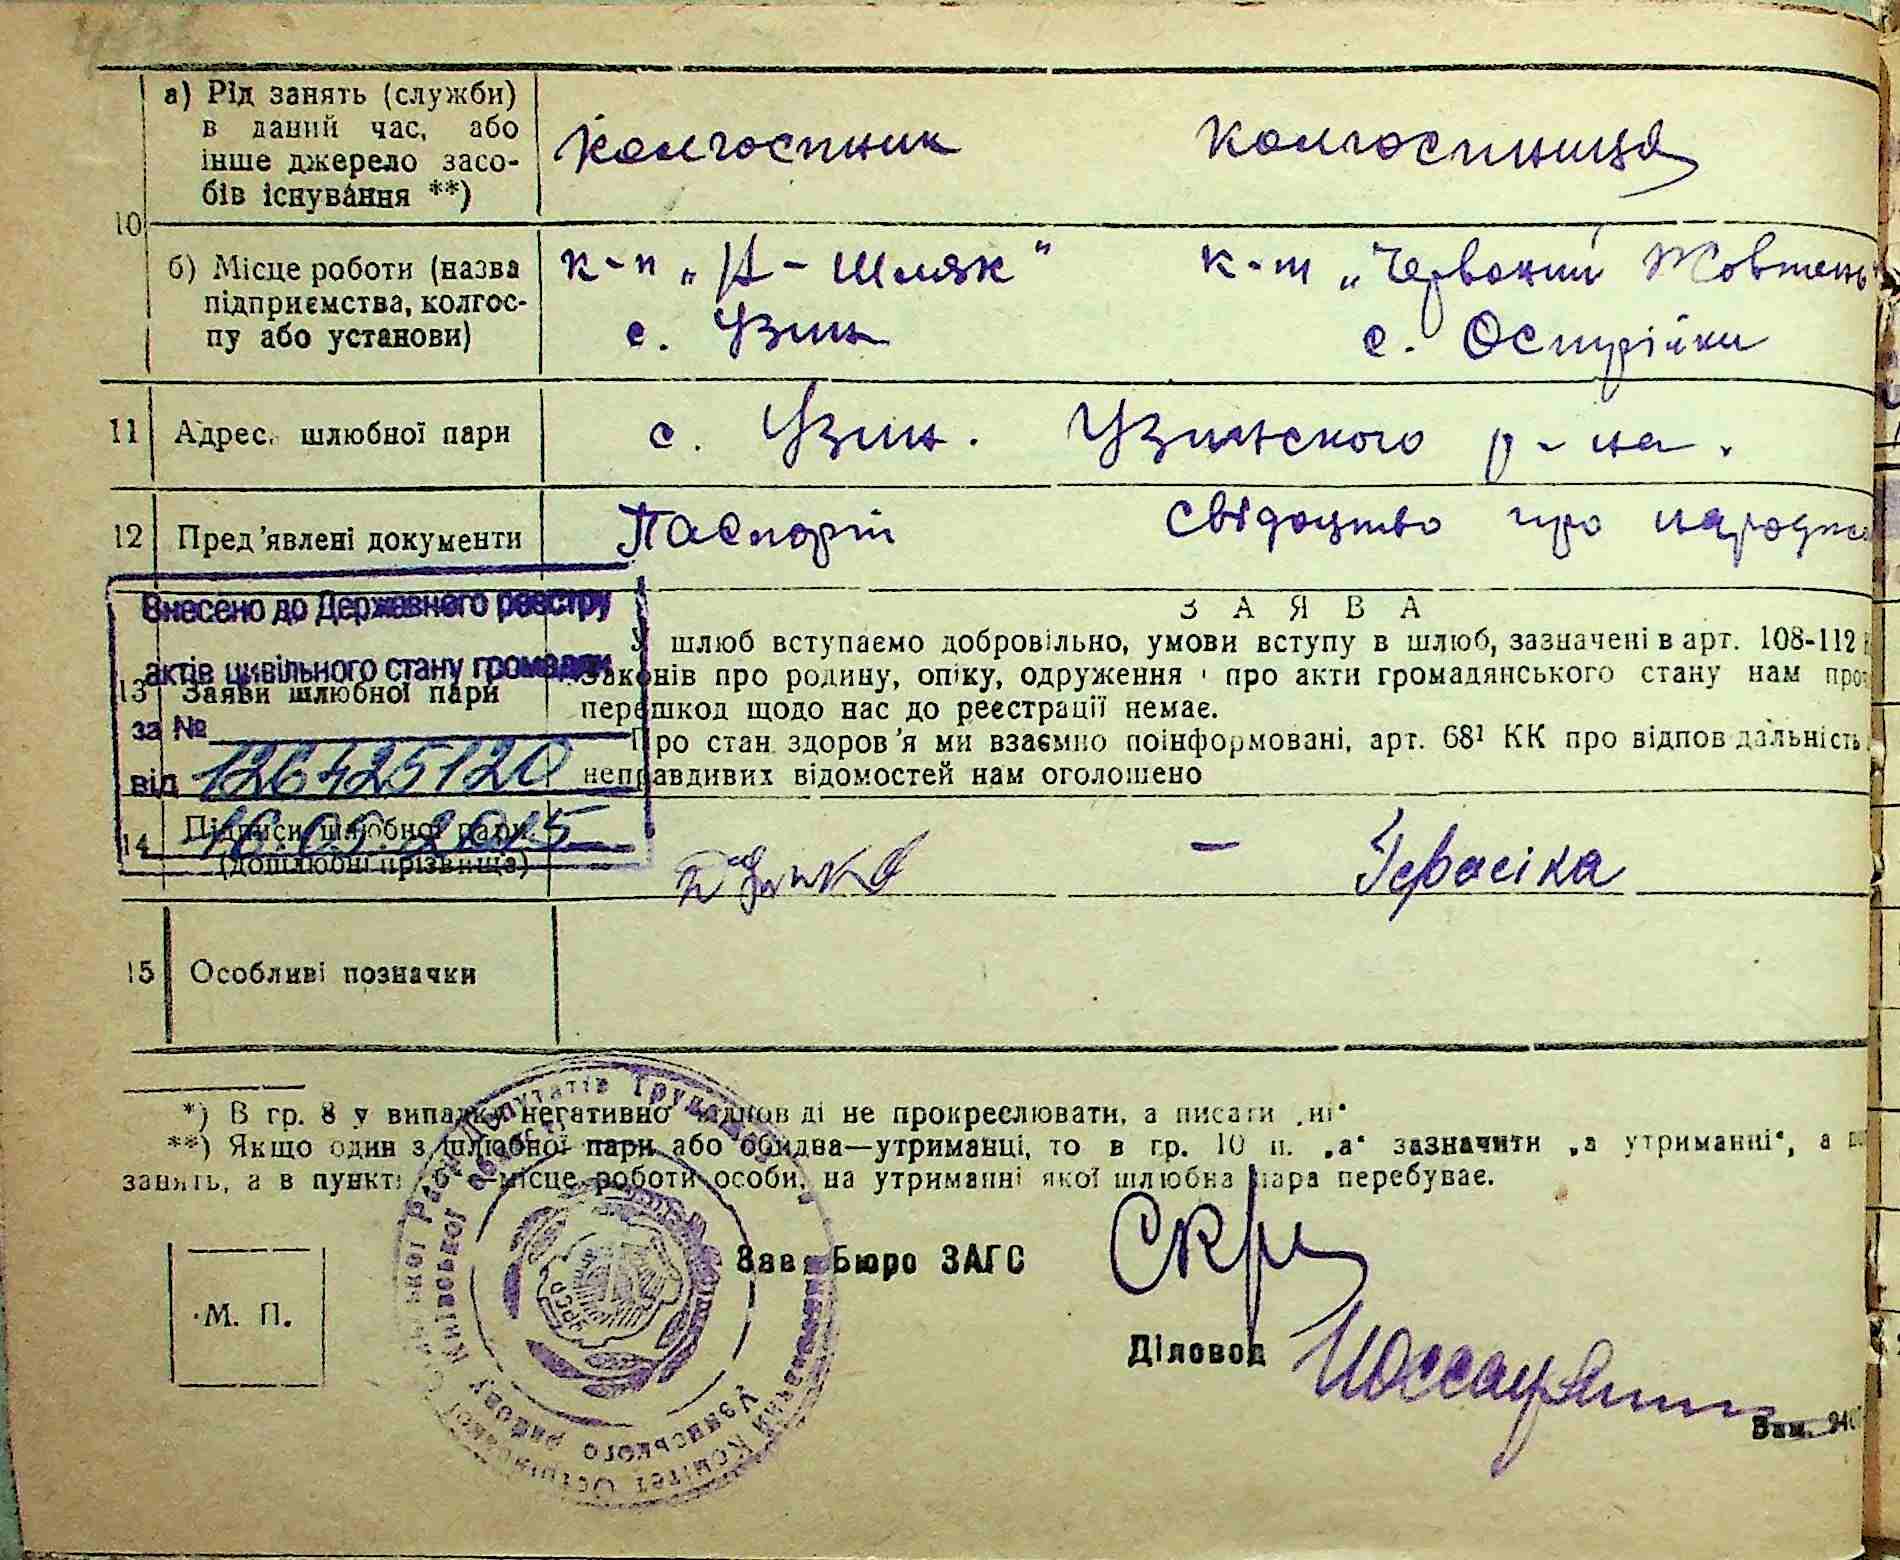 а) Рід занять (служби)
в даний час, або
інше джерело засо-
бів існування **)
Колгоспник Колгоспниця
10
б) Місце роботи (назва
підприємства, колгос-
пу або установи)
к-п „Н-Шлях" к-т „Червоний Жовтень
с. Узин с. Острійки
11 Адрес. шлюбної пари с. Узин. Узинського р-на.
12 Пред'явлені документи Паспорт Свідоцтво про народже
Внесено до Державного реєстру
актів цивільного стану громадян
за №
від 126425120
16.05.2015
ЗАЯВА
13 Заяви шлюбної пари
У шлюб вступаємо добровільно, умови вступу в шлюб, зазначені в арт. 108-112
Законів про родину, опіку, одруження і про акти громадянського стану нам про
перешкод щодо нас до реєстрації немає.
Про стан здоров'я ми взаємно поінформовані, арт. 68¹ КК про відпов дальність
неправдивих відомостей нам оголошено
14 Підписи шлюбної пари
(дошлюбні прізвища)
— Герасіка
15 Особливі позначки
*) В гр. 8 у випадку негативно відпов ді не прокреслювати, а писати „ні"
**) Якщо один з шлюбної пари або обидва—утриманці, то в гр. 10 п. „а" зазначити „а утриманні", а
занять, а в пункті „б"—місце роботи особи, на утриманні якої шлюбна пара перебуває.
Зав. Бюро ЗАГС
М. П.
Діловод
Зам. 940
Депутатів Трудящих
Київської області
Узинського району
УРСР